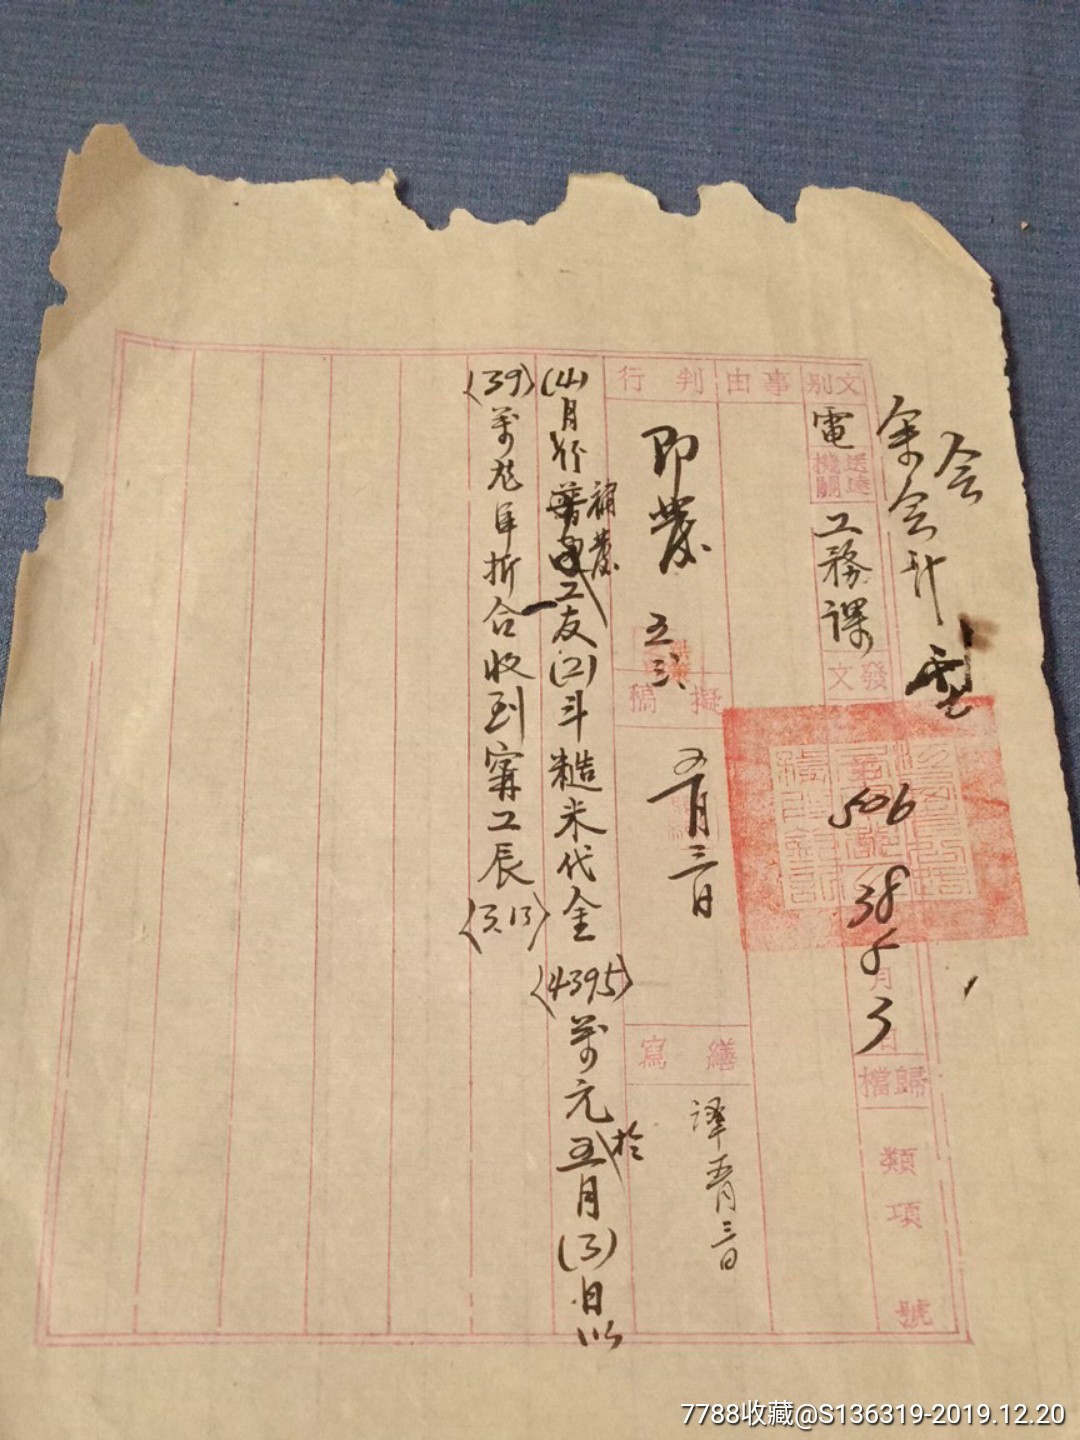 会
余会計
文別
電
送達機關
工務課
發文
506
38 5 3
月 日
歸檔
類
項
號
事由
判行
即發
五
擬稿
五月三日
繕寫
譯 五月三日
(4)月份補發工友(2)斗糙米代金〈4395〉萬元於五月(3)日以
〈39〉萬元折合收到 工辰〈3.13〉
7788收藏@S136319-2019.12.20